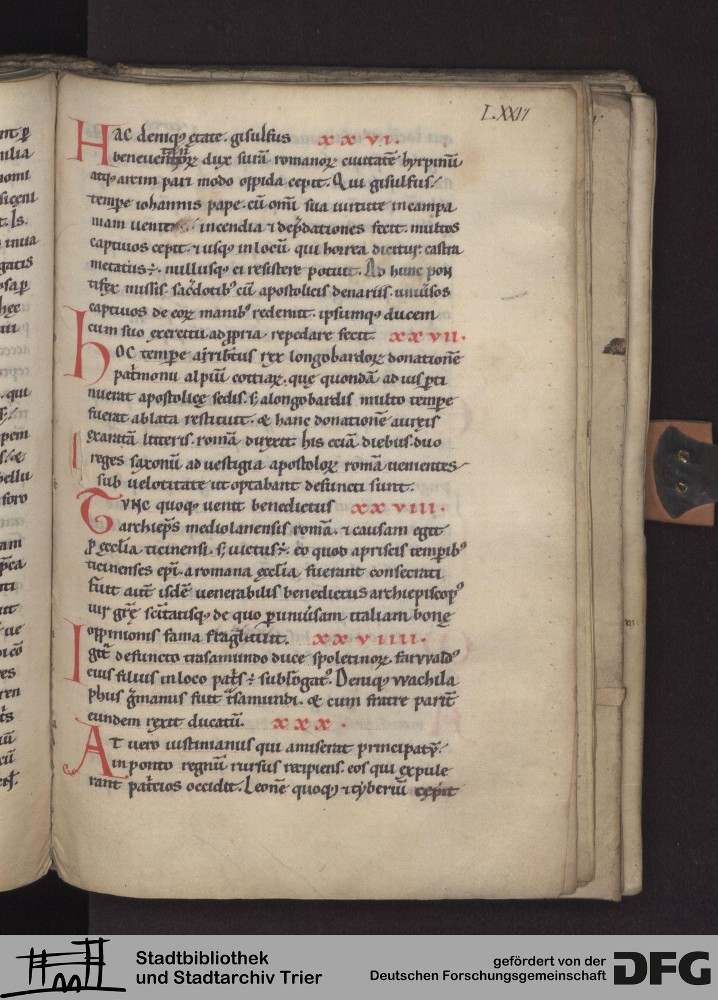 LXXII
Hac deniq; etate. gisulfus xxvi.
beneventanoꝝ dux surā romanoꝝ civitatē hyrpinū
atq; arcim pari modo oppida cepit. Qui gisulfus.
tempe iohannis pape. cū omī sua virtute in campa
niam veniens incendia ⁊ dep̄dationes fecit. multos
captivos cepit. ⁊ usq; in locū qui horrea dicitur castra
metatus ÷. nullusq; ei resistere potuit. Ad hunc pon
tifex missis sac̄dotib; cū apostolicis denariis. univ̄sos
captivos de eoꝝ manib; redemit. ipsumq; ducem
cum suo exercitu ad ppria repedare fecit. xxvii.
Hoc tempe aripertus rex longobardoꝝ donationē
pat̓monii alpiū cottiaꝝ. que quondā ad ius pti
nuerat apostolice sedis. s; a longobardis multo tempe
fuerat ablata restituit. & hanc donationē aureis
exaratā litteris. romā direxit. his eciā diebus. duo
reges saxonū ad vestigia apostoloꝝ romā venientes
sub velocitate ut optabant defuncti sunt.
Tunc quoq; venit benedictus xxviii.
archiep̄s mediolanensis romā. ⁊ causam egit
p̱ ecclia ticinensi. s; victus ÷. eo quod a priscis temporib;
ticinenses ep̄i. a romana ecclia fuerant consecrati
fuit aut̄ isdē venerabilis benedictus archiepiscop;
vir grē sc̄itatisq; de quo p univ̄sam italiam bone
oppinionis fama flagravit. xxviiii.
Igit̄ defuncto trasamundo duce spoletinoꝝ. farvvald;
eius filius in loco pat̓s ÷ subrogat;. Deniq; vvachila
phus ḡmanus fuit t̓samundi. & cum fratre parit̄
eundem rexit ducatū. xxx.
At vero iustinianus qui amiserat principatū.
in ponto regnū rursus recipiens. eos qui expule
rant pat̓cios occidit. Leonē quoq; ⁊ tyberiū cepit
Stadtbibliothek
und Stadtarchiv Trier
gefördert von der
Deutschen Forschungsgemeinschaft
DFG